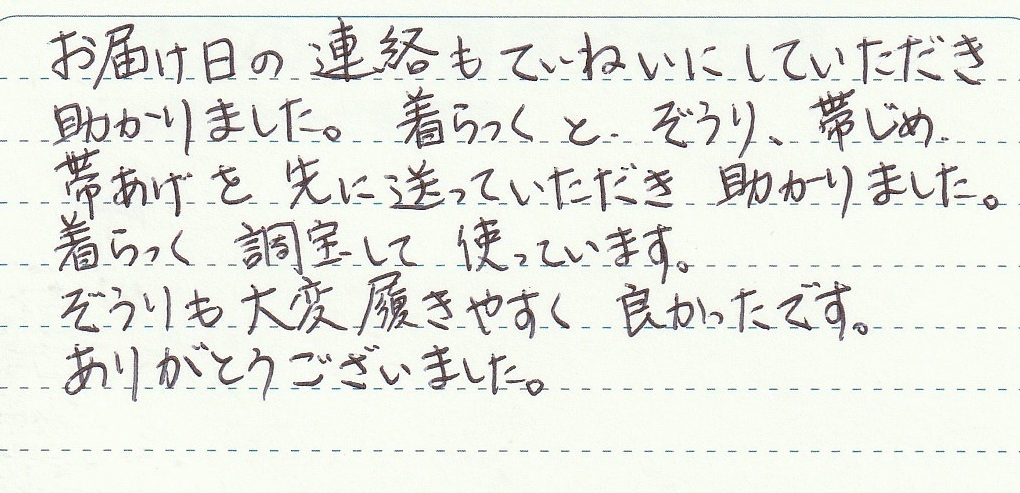 お届け日の連絡もていねいにしていただき
助かりました。着らっくと.ぞうり、帯じめ.
帯あげを先に送っていただき助かりました。
着らっく調宝して使っています。
ぞうりも大変履きやすく良かったです。
ありがとうございました。